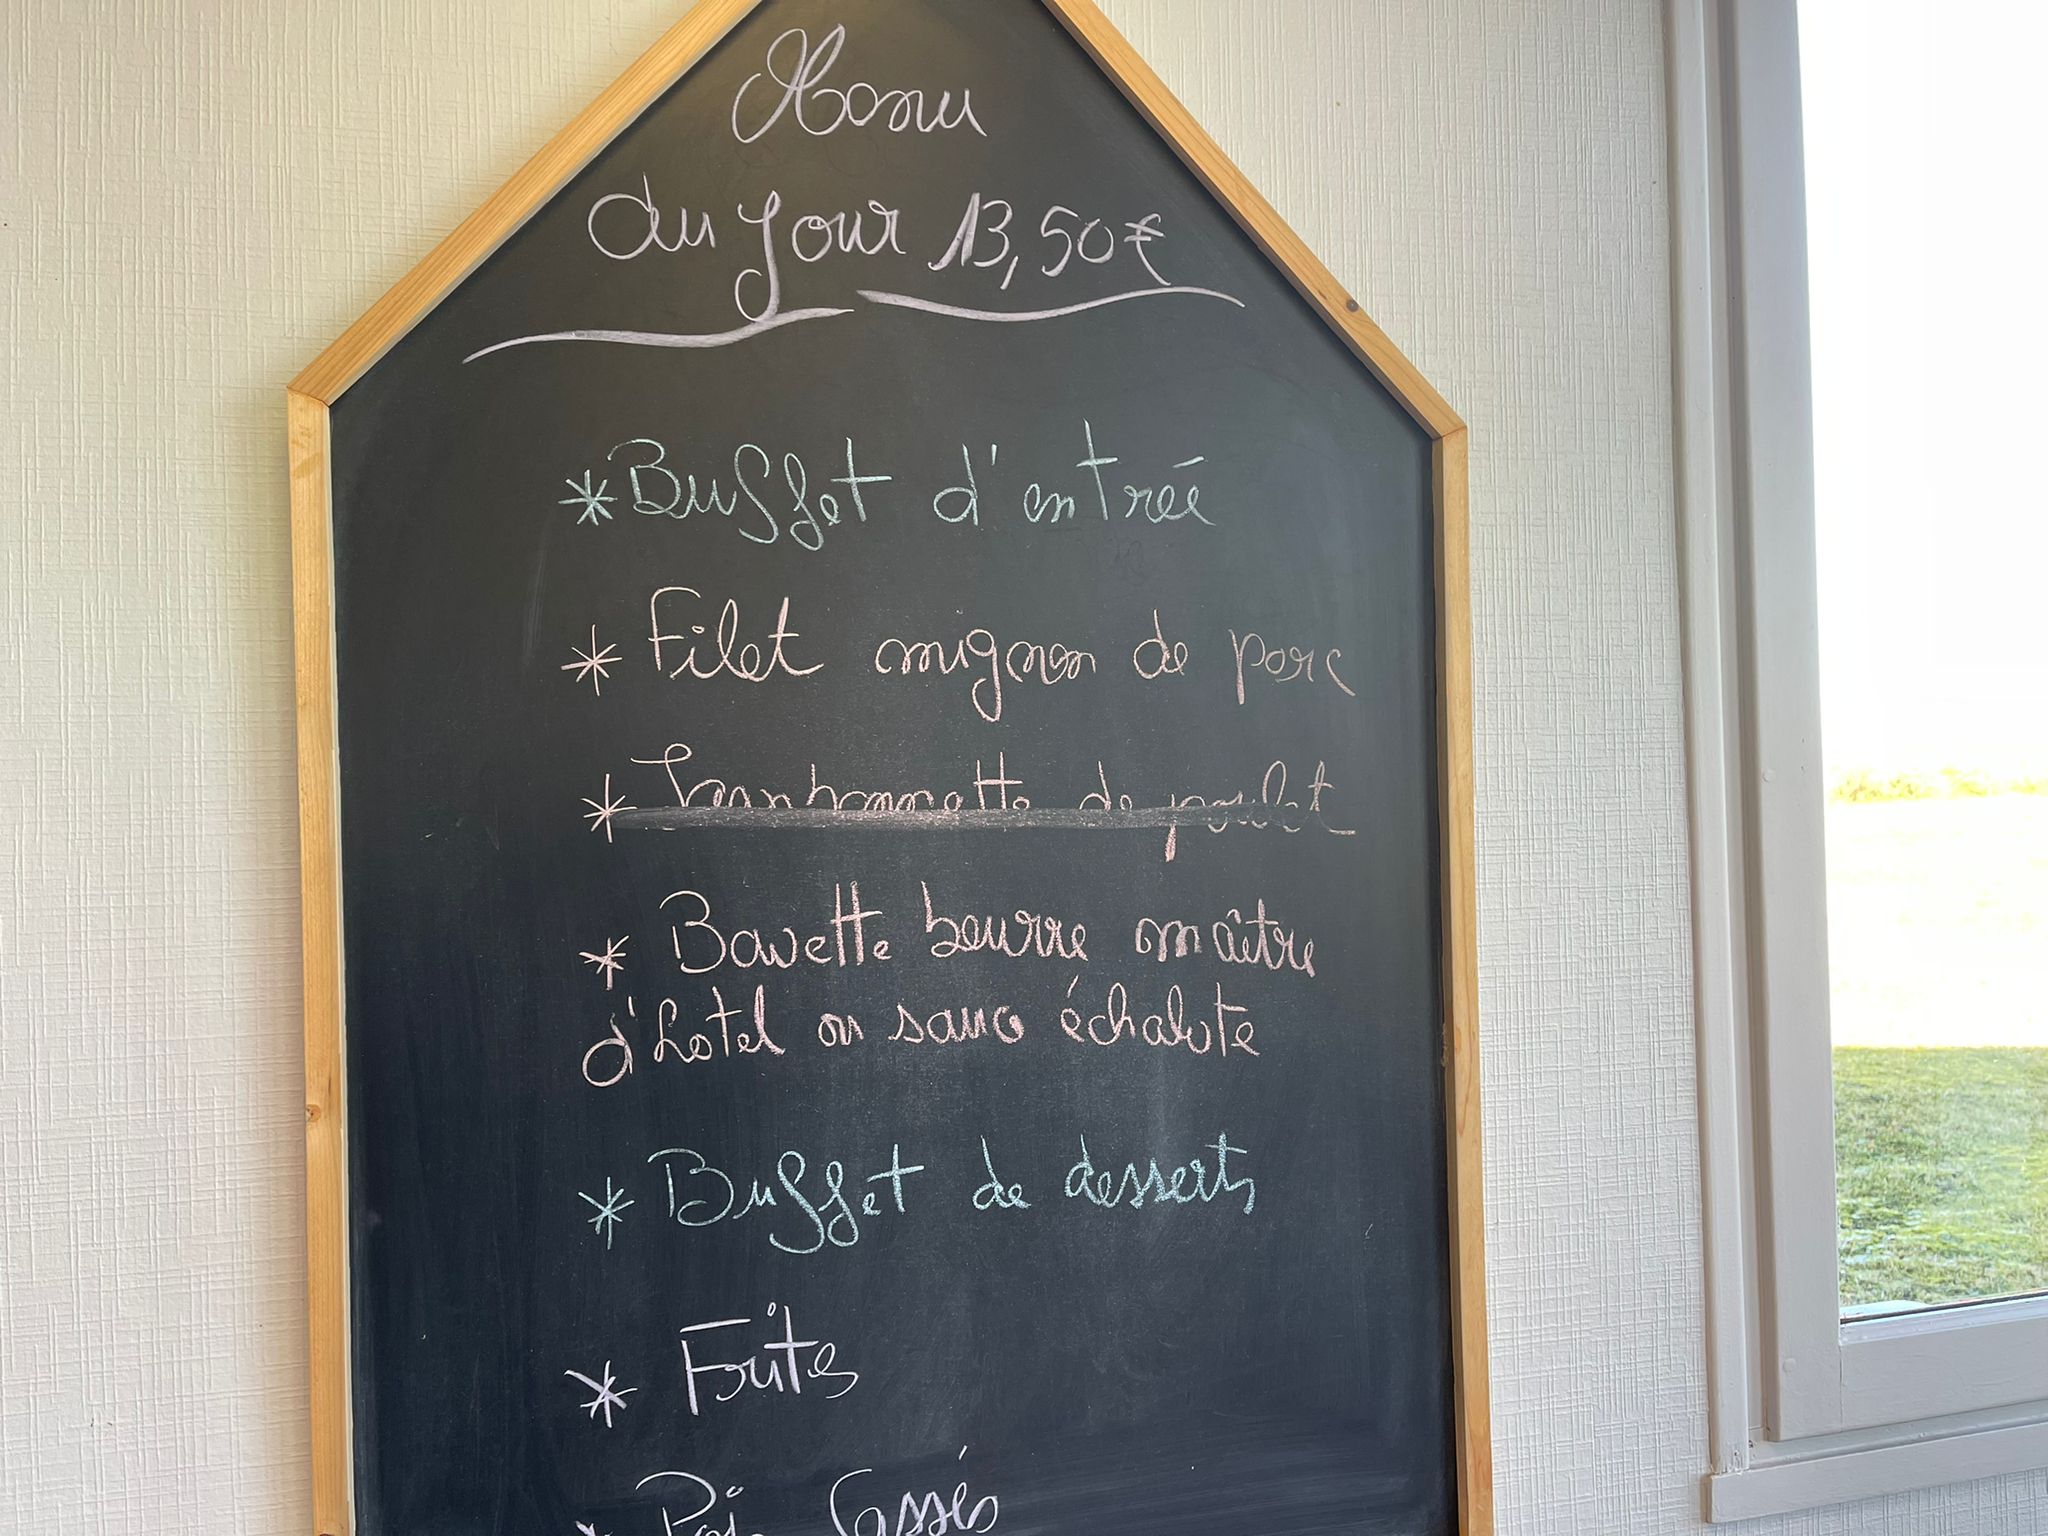 Menu
du Jour 13,50€
*Buffet d'entrée
* Filet mignon de porc
* Jambonnette de poulet
* Bavette beurre maître
d'hôtel ou sauce échalote
* Buffet de desserts
* Frites
* Pois Cassés